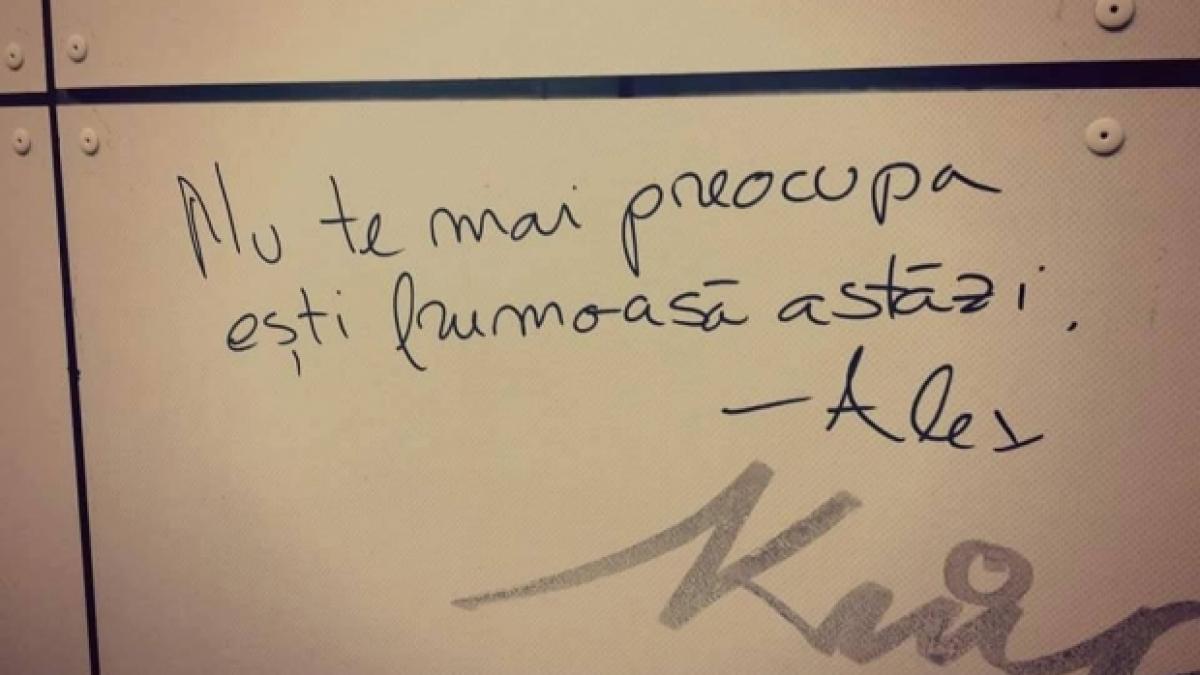 Nu te mai preocupa
ești frumoasă astăzi.
-Alex